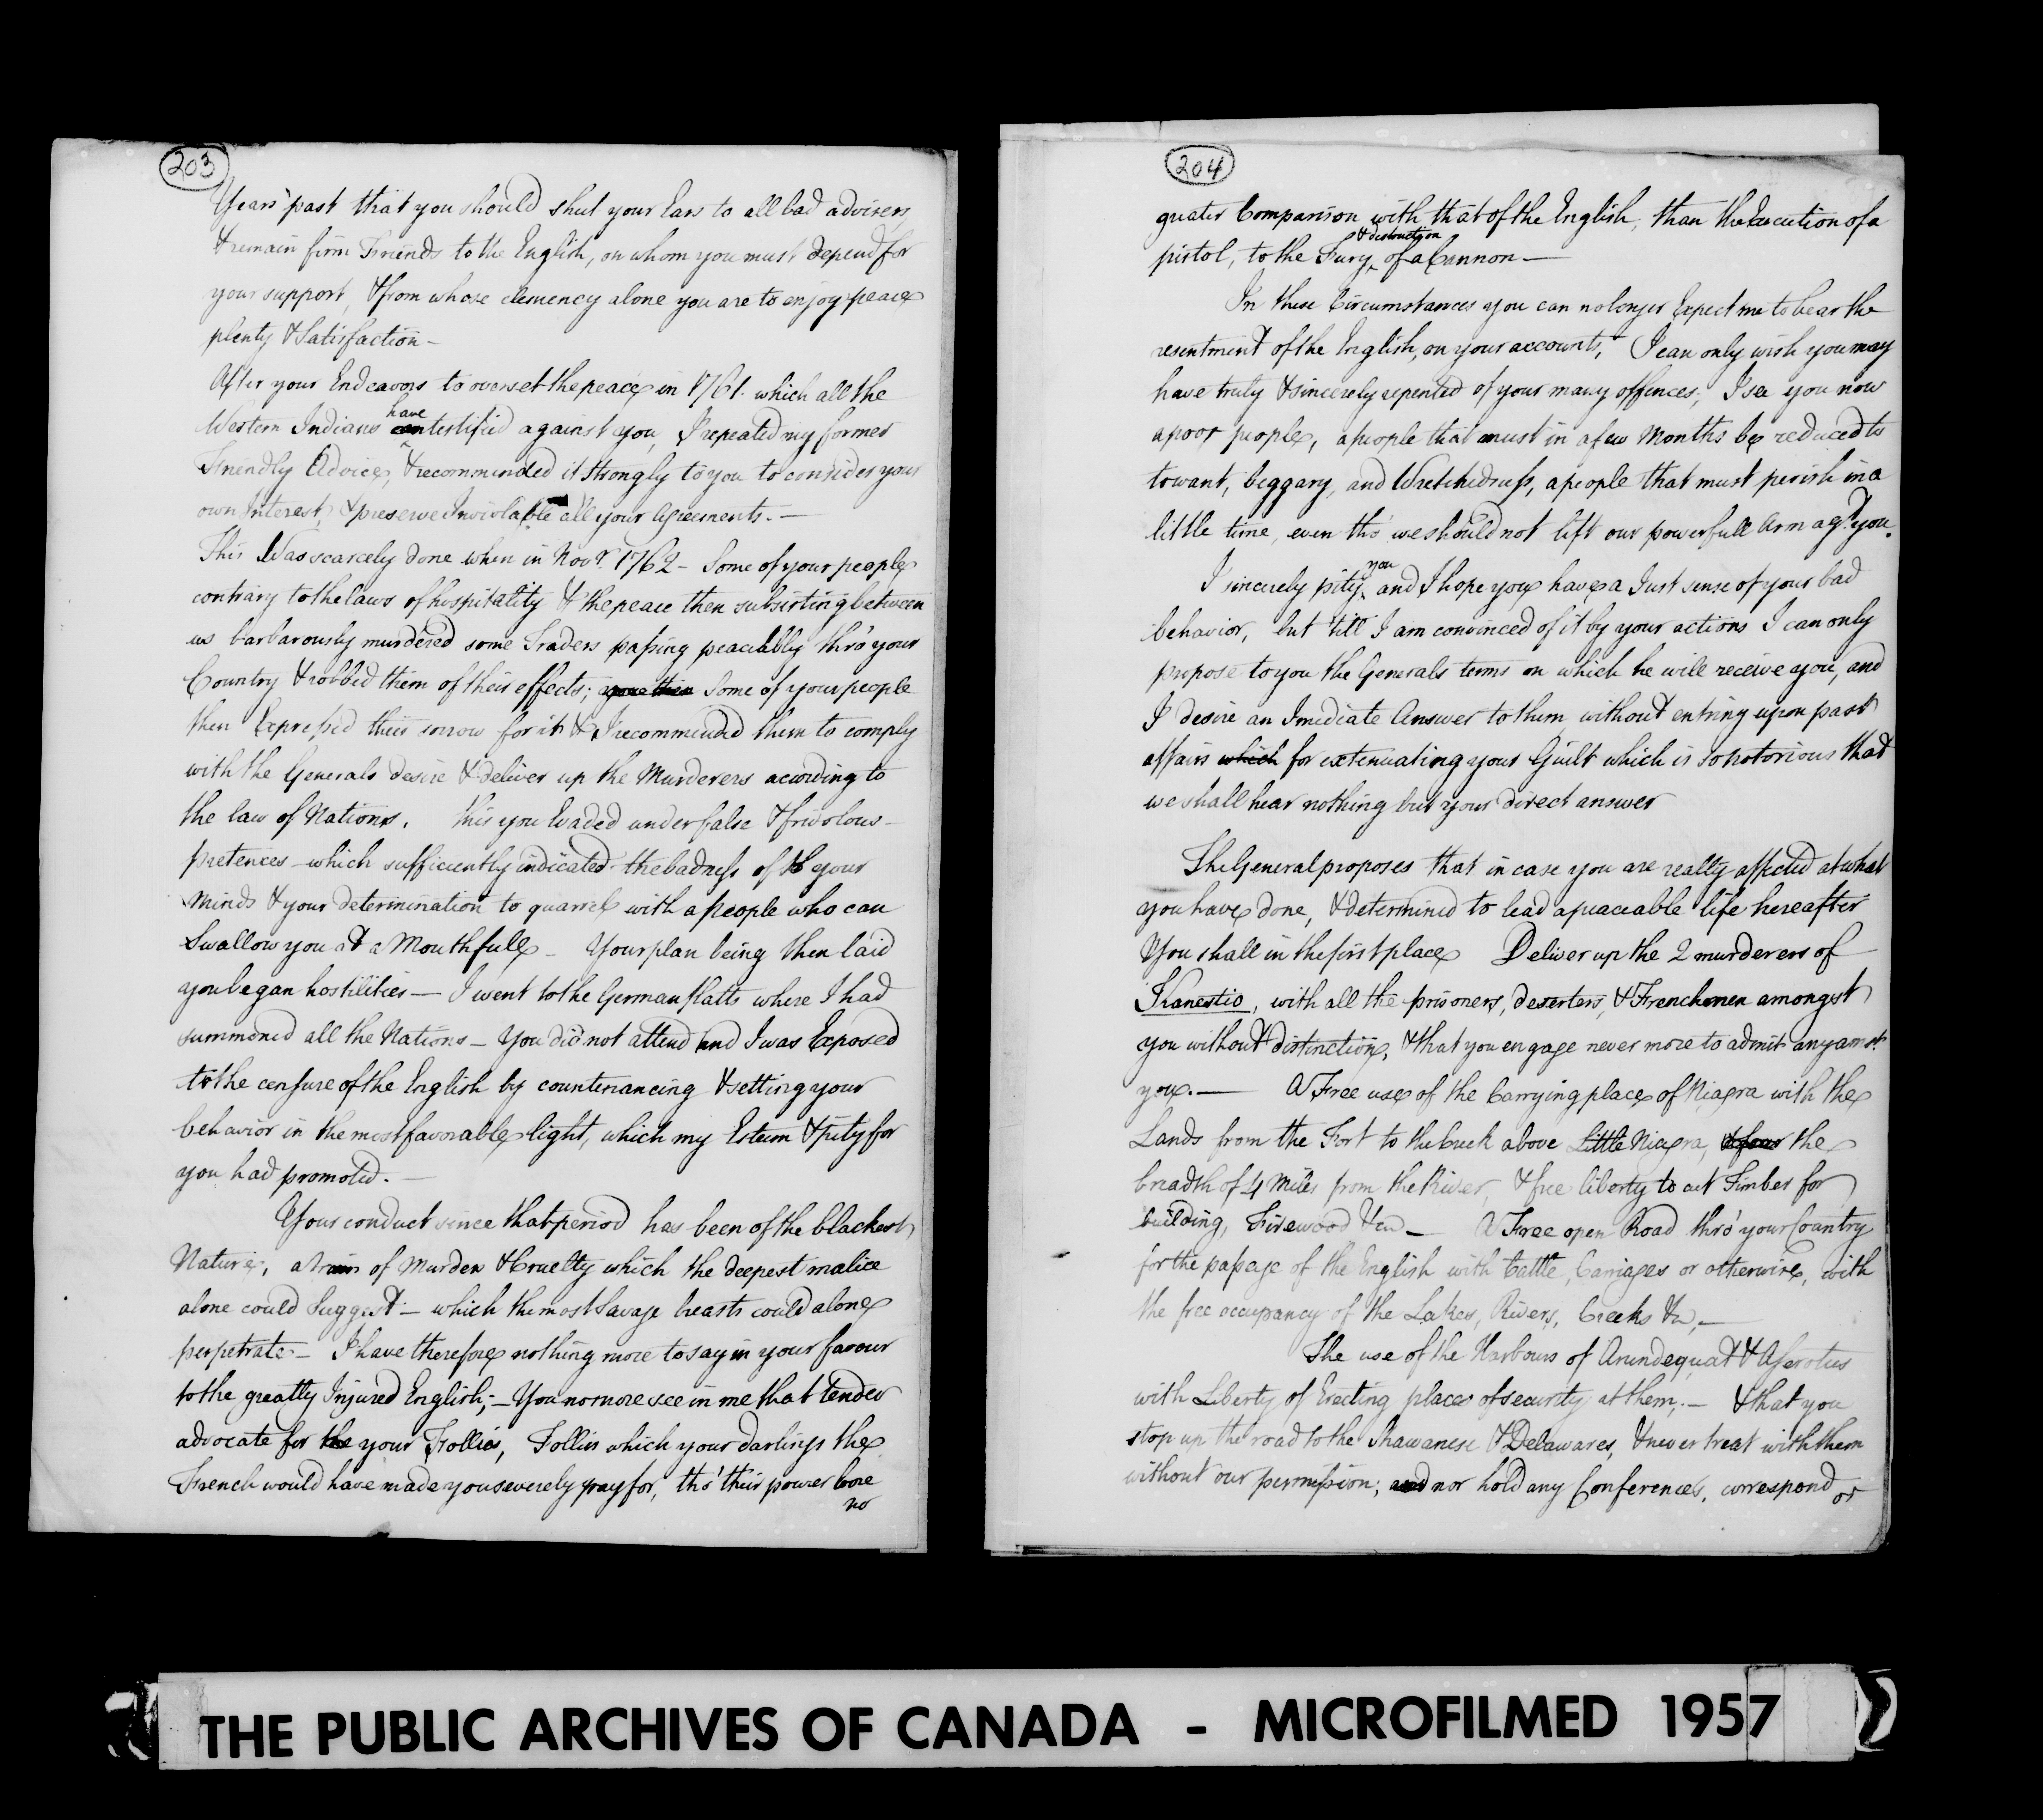 203
Years past that you should shut your Ears to all bad advisers
& remain firm Friends to the English, on whom you must depend for
your support, & from whose clemency alone you are to enjoy peace
plenty & Satisfaction –
After your Endeavors to overset the peace in 1761. which all the
have
Western Indians testified against you, I repeated my former
Friendly Advice, & recommended it strongly to you to consider your
own Interest, & preserve Inviolable all your Agreements. —
This Was scarcely done when in Novr. 1762 – Some of your people
contrary to the laws of hospitality & the peace then subsisting between
us barbarously murdered some Traders passing peaceably thro' your
Country & robbed them of their effects; Some of your people
then Expressed their sorrow for it & I recommended them to comply
with the Generals desire & deliver up the Murderers according to
the law of Nations. this you Evaded under false & frivolous –
pretences – which sufficiently indicated the badness of your
Minds & your determination to quarrel with a people who can
Swallow you at a Mouthfull – Your plan being then laid
you began hostilities — I went to the German flatts where I had
summoned all the Nations – You did not attend and I was Exposed
to the censure of the English by countenancing & setting your
behavior in the most favorable light, which my Esteem & pity for
you had promoted. —
Your conduct since that period has been of the blackest
Nature, a train of Murder & Cruelty which the deepest malice
alone could Suggest – which the most Savage breasts could alone
perpetrate – I have therefore nothing more to say in your favour
to the greatly Injured English; – You no more see in me that tender
advocate for the your Follies, Follies which your darlings the
French would have made you severely pay for, tho' their power bore
no
204
greater Comparison with that of the English, than the Execution of a
& destruction
pistol, to the Fury of a Cannon —
In these Circumstances you can no longer Expect me to bear the
resentment of the English, on your accounts, I can only wish you may
have truly & sincerely repented of your many offences; I see you now
a poor people, a people that must in a few Months be reduced to
to want, beggary, and Wretchedness, a people that must perish in a
little time, even tho' we should not lift our powerfull arm agst. you.
you
I sincerely pity and I hope you have a Just sense of your bad
behavior, but 'till I am convinced of it by your actions I can only
propose to you the Generals terms on which he will receive you, and
I desire an Imediate Answer to them without entring upon past
affairs which for extenuating your Guilt which is so notorious that
we shall hear nothing but your direct answer
The General proposes that in case you are really affected at what
you have done, & determined to lead a peaceable life hereafter
You shall in the first place Deliver up the 2 murderers of
Kanestio, with all the prisoners, deserters, & Frenchmen amongst
you without distinction, & that you engage never more to admit any amst.
you. — A Free use of the Carrying place of Niagra with the
Lands from the Fort to the Creek above Little Niagra, the
breadth of 4 Miles from the River, & free liberty to cut Timber for
building, Firewood &ca — A Free open Road thro' your Country
for the passage of the English with Cattle, Carriages or otherwise, with
the free occupancy of the Lakes, Rivers, Creeks &ca, —
The use of the Harbours of Arundequat & Aserotus
with Liberty of Erecting places of security at them, – & that you
stop up the road to the Shawanese & Delawares, & never treat with them
without our permission; and nor hold any Conferences, correspond or
THE PUBLIC ARCHIVES OF CANADA - MICROFILMED 1957